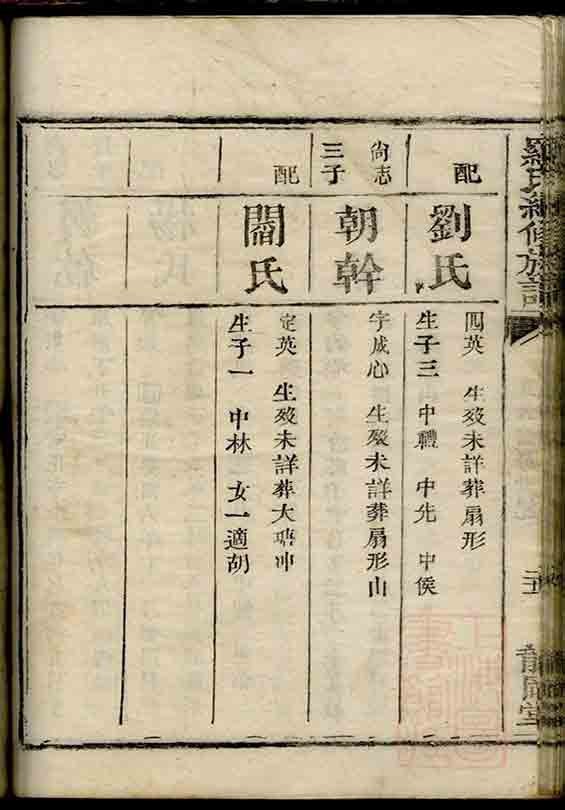 羅氏續修族譜
配
劉氏
四英 生歿未詳葬扇形
生子三 中禮 中先 中侯
尚志
三子
朝幹
字成心 生歿未詳葬扇形山
配
閻氏
定英 生歿未詳葬大塘冲
生子一 中林 女一適胡